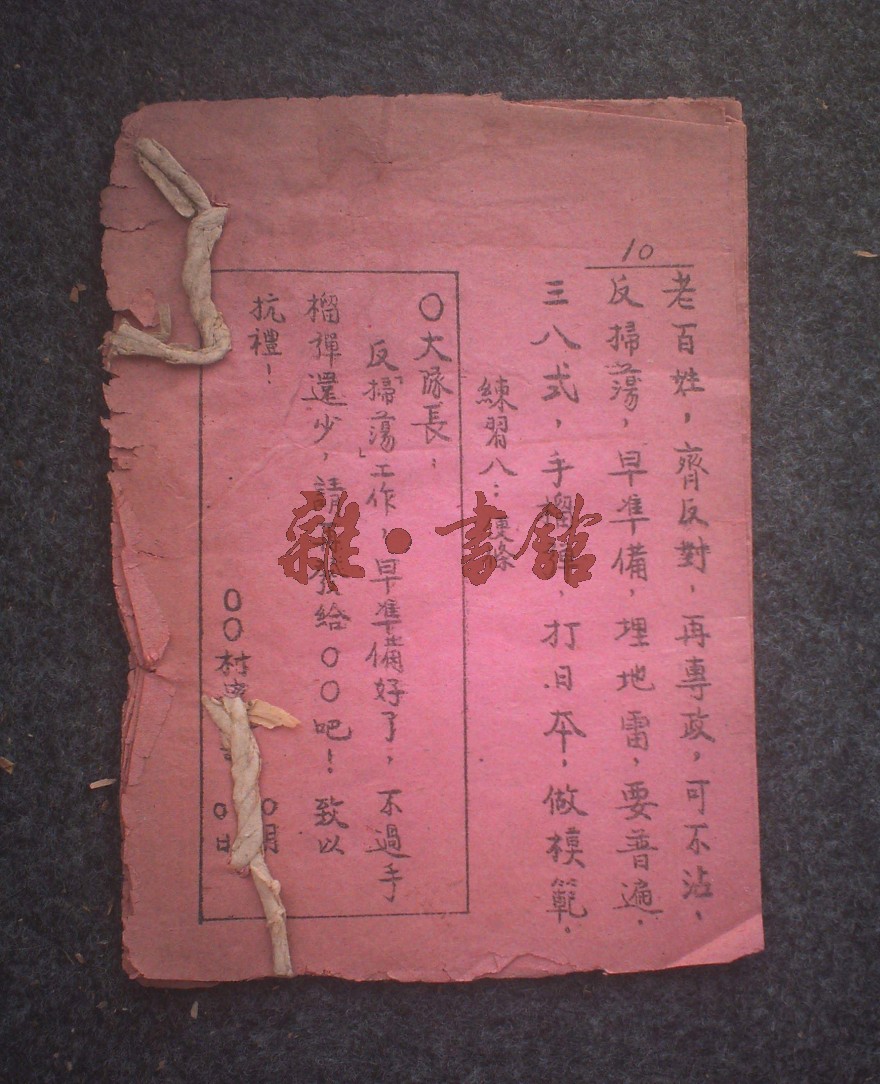 10
老百姓，齊反對，再專政，可不沾，
反掃蕩，早準備，埋地雷，要普遍．
三八式，手榴彈，打日本，做模範．
練習八：便條
〇大隊長：
反「掃蕩」工作，早準備好了，不過手
榴彈還少，請 給〇〇吧！致以
抗禮！
〇〇村
〇月
〇日
雜·書館